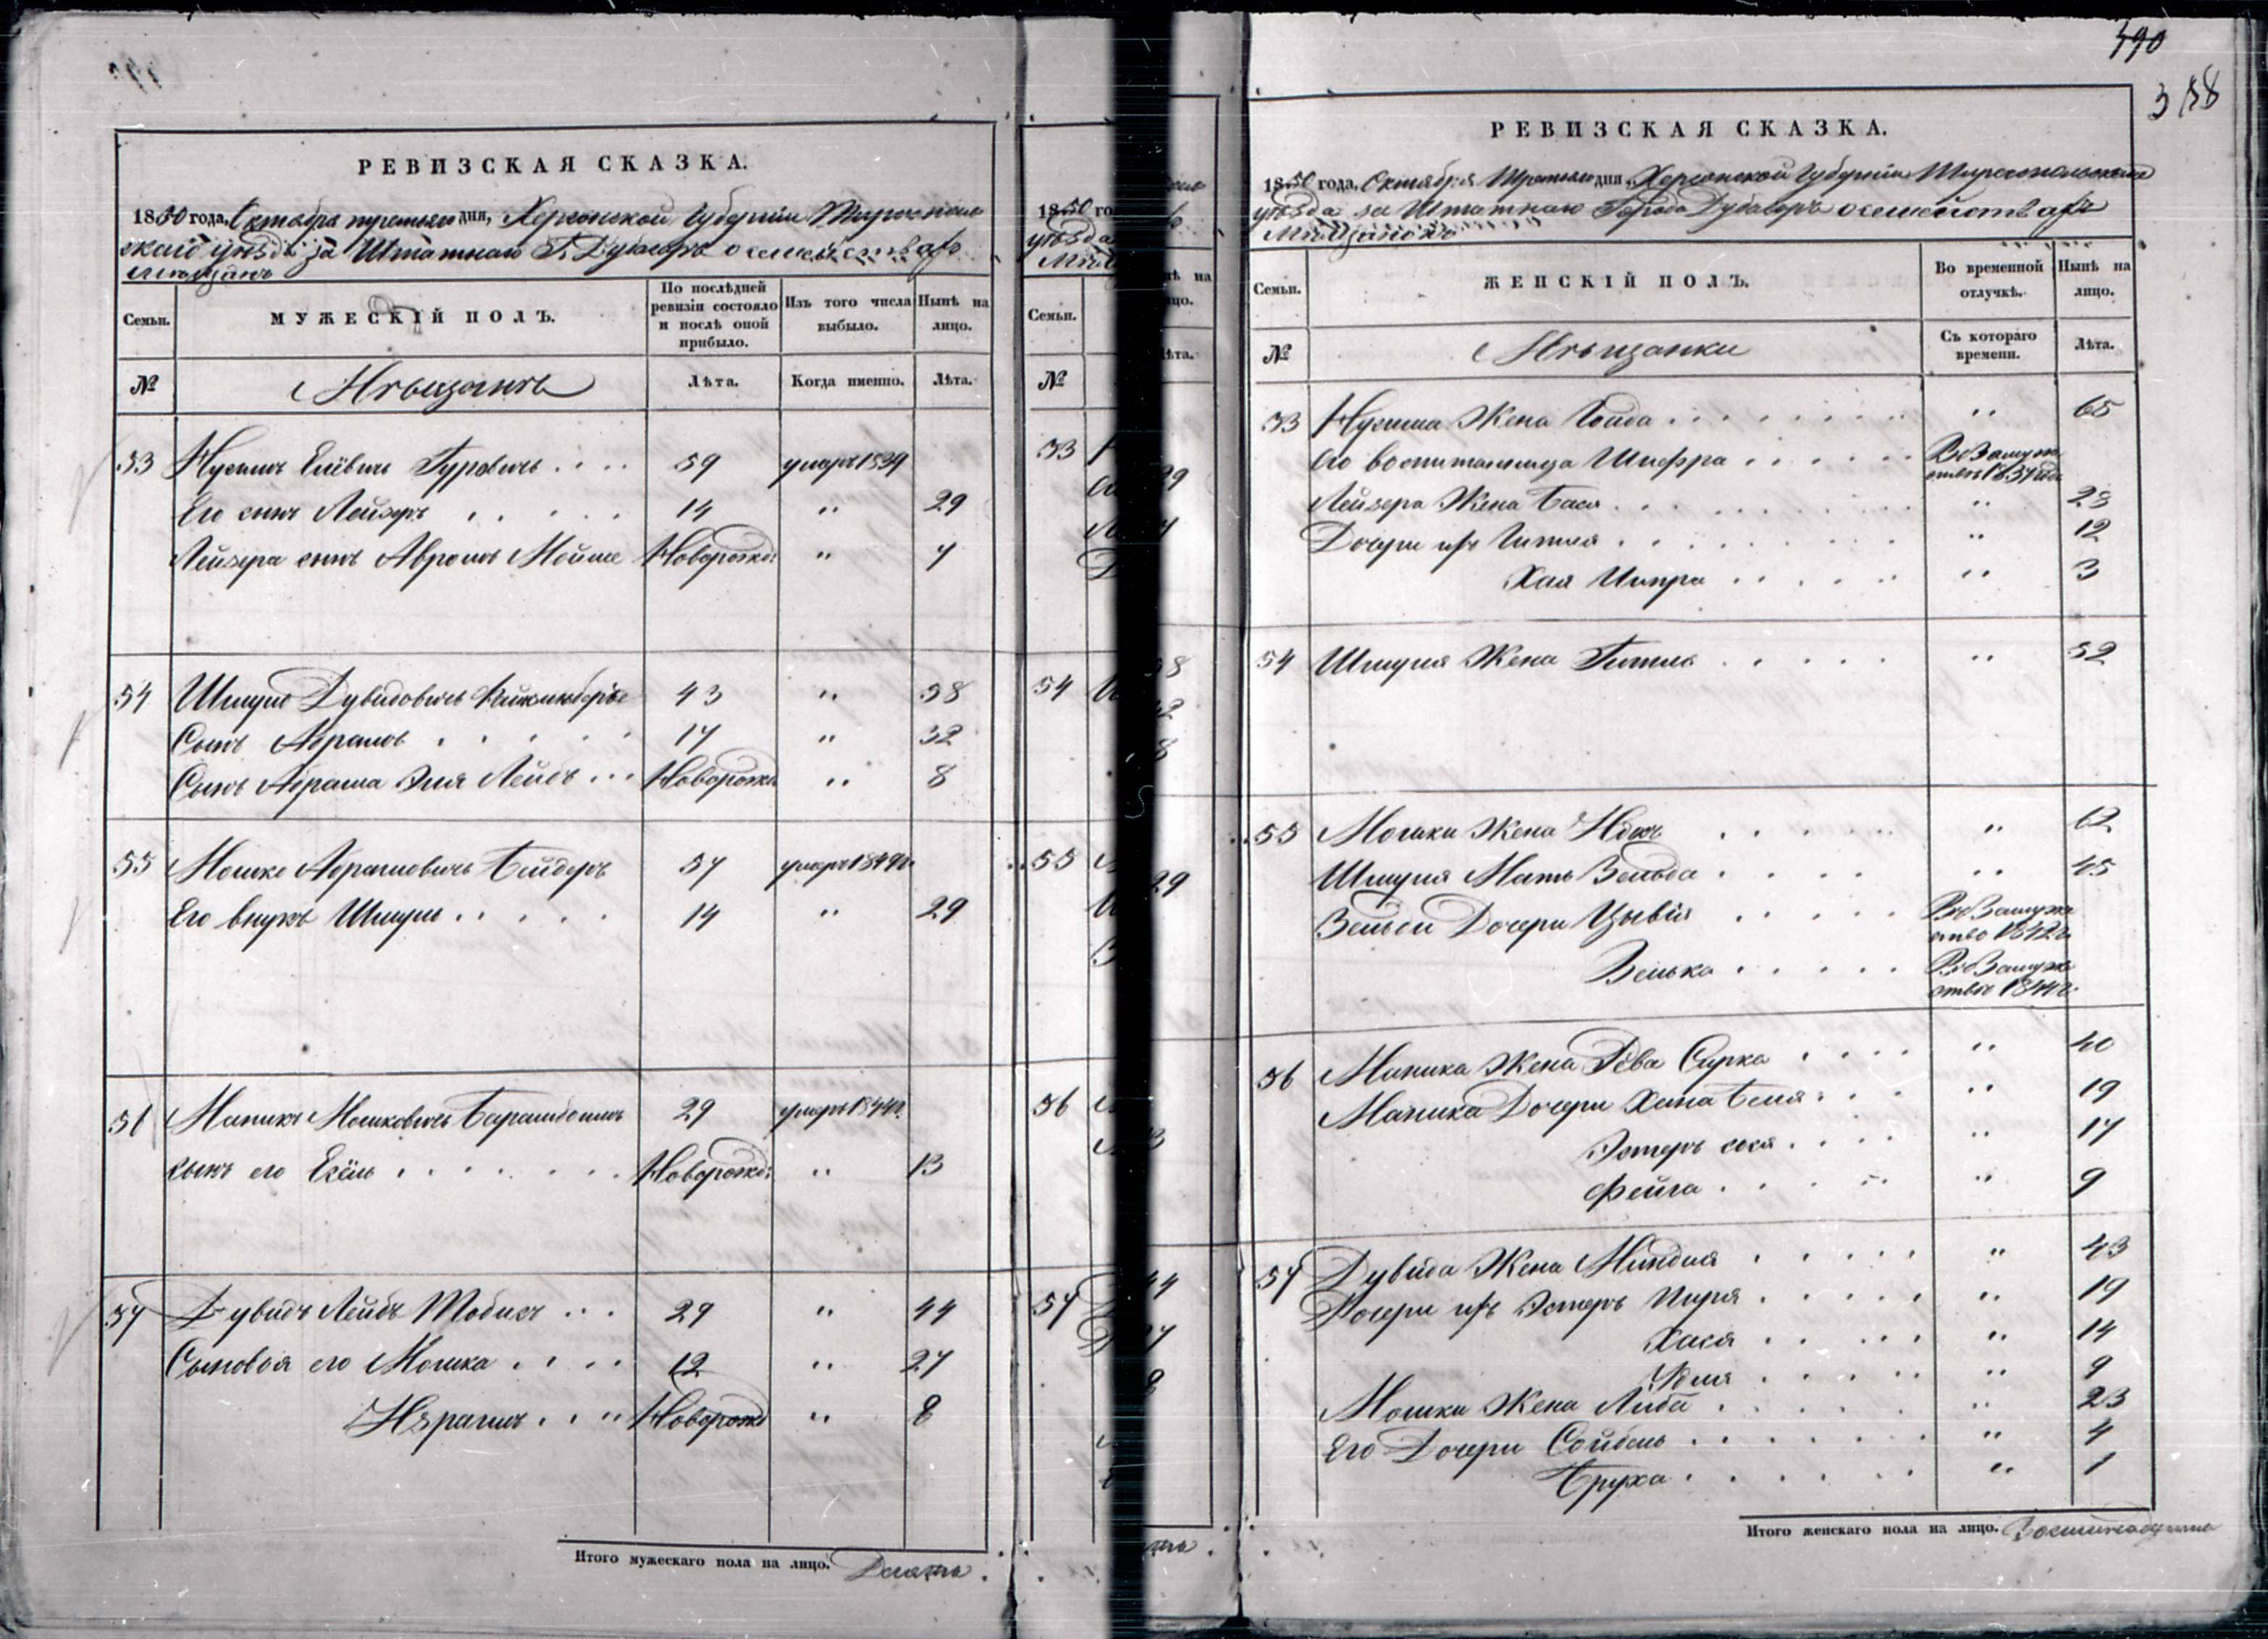 РЕВИЗСКАЯ СКАЗКА.
1850 года, Октября третьяго дня, Херсонской Губернiи Тирасполь
скаго уѣзда за Штатнаго Г. Дубосаръ о семействахъ
мѣщанъ
Семьи. МУЖЕСКIЙ ПОЛЪ. По послѣдней ревизiи состояло и послѣ оной прибыло. Изъ того числа выбыло. Нынѣ на лицо.
№ Мѣщанъ Лѣта. Когда именно. Лѣта.
53 Нусинъ Гуровичъ 59 умеръ 1839
Его сынъ Лейзеръ 14 " 29
Лейзера сынъ Абрамъ Мойше Новорожд: " 7
54 Шмуль Дувидовичъ 43 " 58
Сынъ Абрамъ 17 " 32
Сынъ Абрама Эля Лейбъ Новорожд " 8
55 Мошко Абрамовичъ 57 умеръ 1849г.
Его внукъ Шмуль 14 " 29
56 Маникъ Мошковичъ 29 умеръ 1844г.
сынъ его Новорожд: " 13
57 Дувидъ Лейбъ Товика 29 " 44
Сыновья его Мошка 12 " 27
Новорожд " 8
Итого мужескаго пола на лицо. Десять
1850 го
уѣзда
Семьи.
№
53
54
55
56
57
490
358
РЕВИЗСКАЯ СКАЗКА.
1850 года, Октября Третьяго дня, Херсонской Губернiи Тираспольскаго
уѣзда за Штатнаго Города Дубосаръ о семействахъ
Мѣщанокъ
Семьи. ЖЕНСКIЙ ПОЛЪ. Во временной отлучкѣ. Нынѣ на лицо.
№ Мѣщанки Съ котораго времени. Лѣта.
53 Нусина Жена " 65
Его воспитанница Шифра Въ Замуж
ствѣ 1837 года
Лейзера Жена Бася " 28
Дочери ихъ Гитля " 12
Хая " 3
54 Шмуля Жена Гитля " 52
55 Мошки Жена " 62
Шмуля Мать Зельда " 45
Дочери Цывiя Въ Замуже
ство 1842г.
Зелька Въ Замуже
ствѣ 1844г.
56 Маника Жена Рева Сурка " 40
Маника Дочери Хана Бейла " 19
Эстеръ " 17
Фейга " 9
57 Дувида Жена Миндля " 43
Дочери ихъ Эстеръ " 19
Хася " 14
" 9
Мошки Жена Либа " 23
Его Дочери " 4
Бруха " 1
Итого женскаго пола на лицо. Восемнадцать